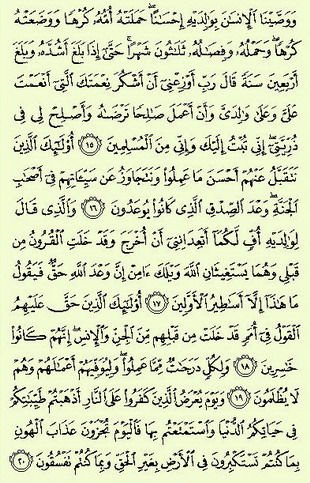 وَوَصَّيْنَا ٱلْإِنسَٰنَ بِوَٰلِدَيْهِ إِحْسَٰنًا ۖ حَمَلَتْهُ أُمُّهُۥ كُرْهًا وَوَضَعَتْهُ
كُرْهًا ۖ وَحَمْلُهُۥ وَفِصَٰلُهُۥ ثَلَٰثُونَ شَهْرًا ۚ حَتَّىٰٓ إِذَا بَلَغَ أَشُدَّهُۥ وَبَلَغَ
أَرْبَعِينَ سَنَةً قَالَ رَبِّ أَوْزِعْنِىٓ أَنْ أَشْكُرَ نِعْمَتَكَ ٱلَّتِىٓ أَنْعَمْتَ
عَلَىَّ وَعَلَىٰ وَٰلِدَىَّ وَأَنْ أَعْمَلَ صَٰلِحًا تَرْضَىٰهُ وَأَصْلِحْ لِى فِى
ذُرِّيَّتِىٓ ۖ إِنِّى تُبْتُ إِلَيْكَ وَإِنِّى مِنَ ٱلْمُسْلِمِينَ ١٥ أُو۟لَٰٓئِكَ ٱلَّذِينَ
نَتَقَبَّلُ عَنْهُمْ أَحْسَنَ مَا عَمِلُوا۟ وَنَتَجَاوَزُ عَن سَيِّـَٔاتِهِمْ فِىٓ أَصْحَٰبِ
ٱلْجَنَّةِ ۖ وَعْدَ ٱلصِّدْقِ ٱلَّذِى كَانُوا۟ يُوعَدُونَ ١٦ وَٱلَّذِى قَالَ
لِوَٰلِدَيْهِ أُفٍّ لَّكُمَآ أَتَعِدَانِنِىٓ أَنْ أُخْرَجَ وَقَدْ خَلَتِ ٱلْقُرُونُ مِن
قَبْلِى وَهُمَا يَسْتَغِيثَانِ ٱللَّهَ وَيْلَكَ ءَامِنْ إِنَّ وَعْدَ ٱللَّهِ حَقٌّ فَيَقُولُ
مَا هَٰذَآ إِلَّآ أَسَٰطِيرُ ٱلْأَوَّلِينَ ١٧ أُو۟لَٰٓئِكَ ٱلَّذِينَ حَقَّ عَلَيْهِمُ
ٱلْقَوْلُ فِىٓ أُمَمٍ قَدْ خَلَتْ مِن قَبْلِهِم مِّنَ ٱلْجِنِّ وَٱلْإِنسِ ۖ إِنَّهُمْ كَانُوا۟
خَٰسِرِينَ ١٨ وَلِكُلٍّ دَرَجَٰتٌ مِّمَّا عَمِلُوا۟ ۖ وَلِيُوَفِّيَهُمْ أَعْمَٰلَهُمْ وَهُمْ
لَا يُظْلَمُونَ ١٩ وَيَوْمَ يُعْرَضُ ٱلَّذِينَ كَفَرُوا۟ عَلَى ٱلنَّارِ أَذْهَبْتُمْ طَيِّبَٰتِكُمْ
فِى حَيَاتِكُمُ ٱلدُّنْيَا وَٱسْتَمْتَعْتُم بِهَا فَٱلْيَوْمَ تُجْزَوْنَ عَذَابَ ٱلْهُونِ
بِمَا كُنتُمْ تَسْتَكْبِرُونَ فِى ٱلْأَرْضِ بِغَيْرِ ٱلْحَقِّ وَبِمَا كُنتُمْ تَفْسُقُونَ ٢٠